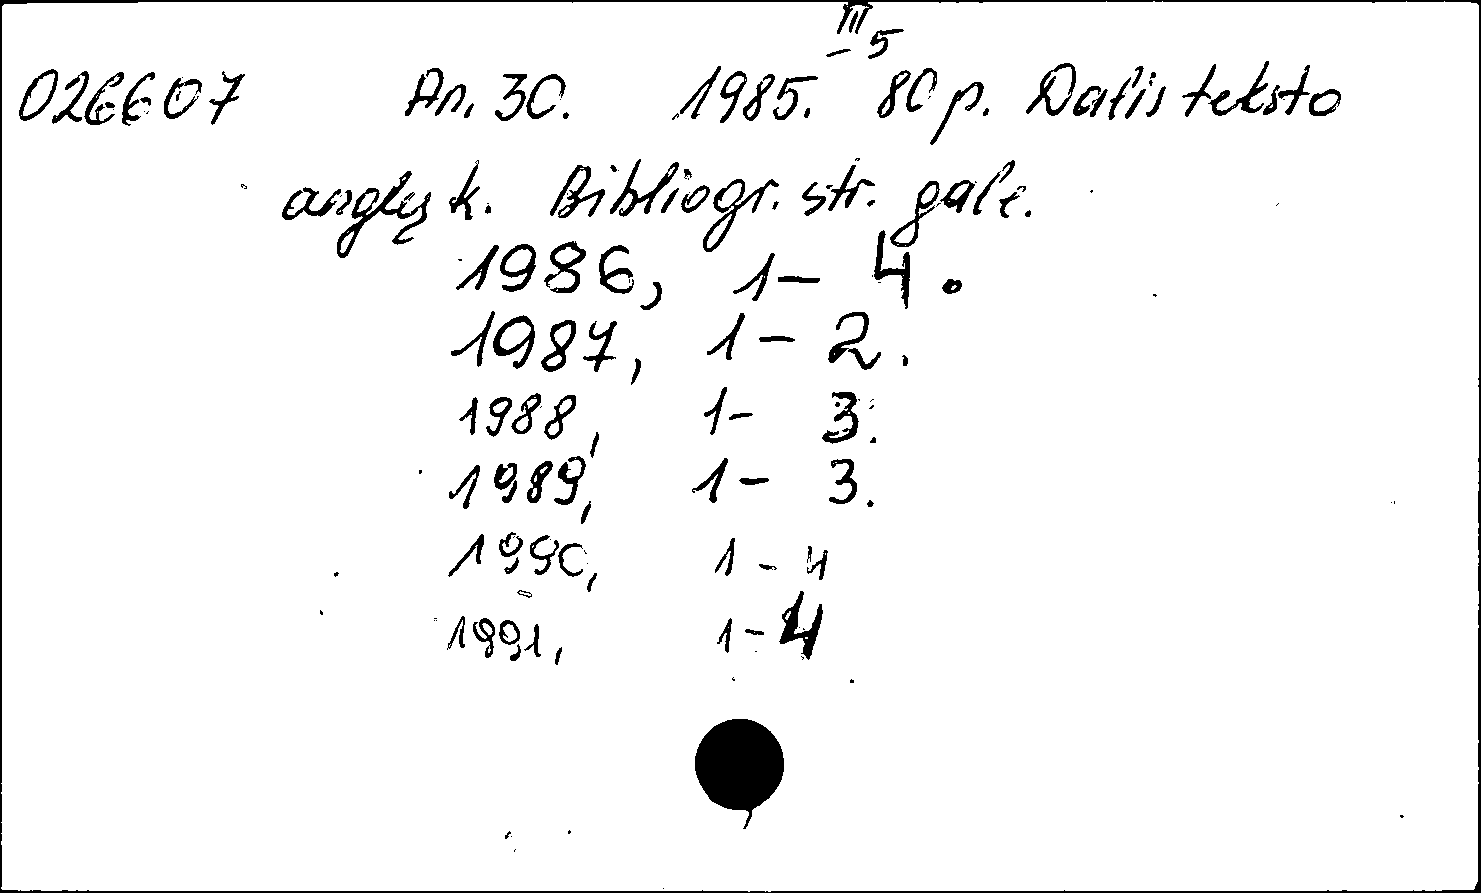 III 5
026607 An. 30. 1985. 80 p. Dalis teksto
anglų k. Bibliogr. str. gale.
1986, 1 - 4.
1987, 1 - 2.
1988, 1 - 3.
1989, 1 - 3.
1990, 1 - 4
1991, 1 - 4